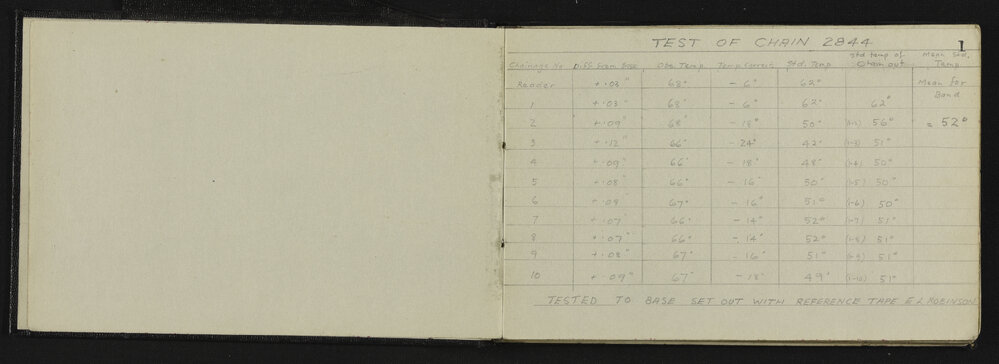 TEST OF CHAIN 2844
1
Chainage No Diff. from Base Obs. Temp. Temp. Correct. Std. Temp Std temp of Chain out Mean Std. Temp.
Reader +.03" 68° - 6° 62° Mean for Band
1 +.03" 68° - 6° 62° 62°
2 +.09" 68° - 18° 50° (1-2) 56° = 52°
3 +.12 66° - 24° 42° (1-3) 51°
4 +.09" 66° - 18° 48° (1-4) 50°
5 +.08" 66° - 16° 50° (1-5) 50°
6 +.08" 67° - 16° 51° (1-6) 50°
7 +.07 66° - 14° 52° (1-7) 51°
8 +.07" 66° - 14° 52° (1-8) 51°
9 +.08" 67° - 16° 51° (1-9) 51°
10 +.09" 67° - 18° 49° (1-10) 51°
TESTED TO BASE SET OUT WITH REFERENCE TAPE E.L ROBINSON